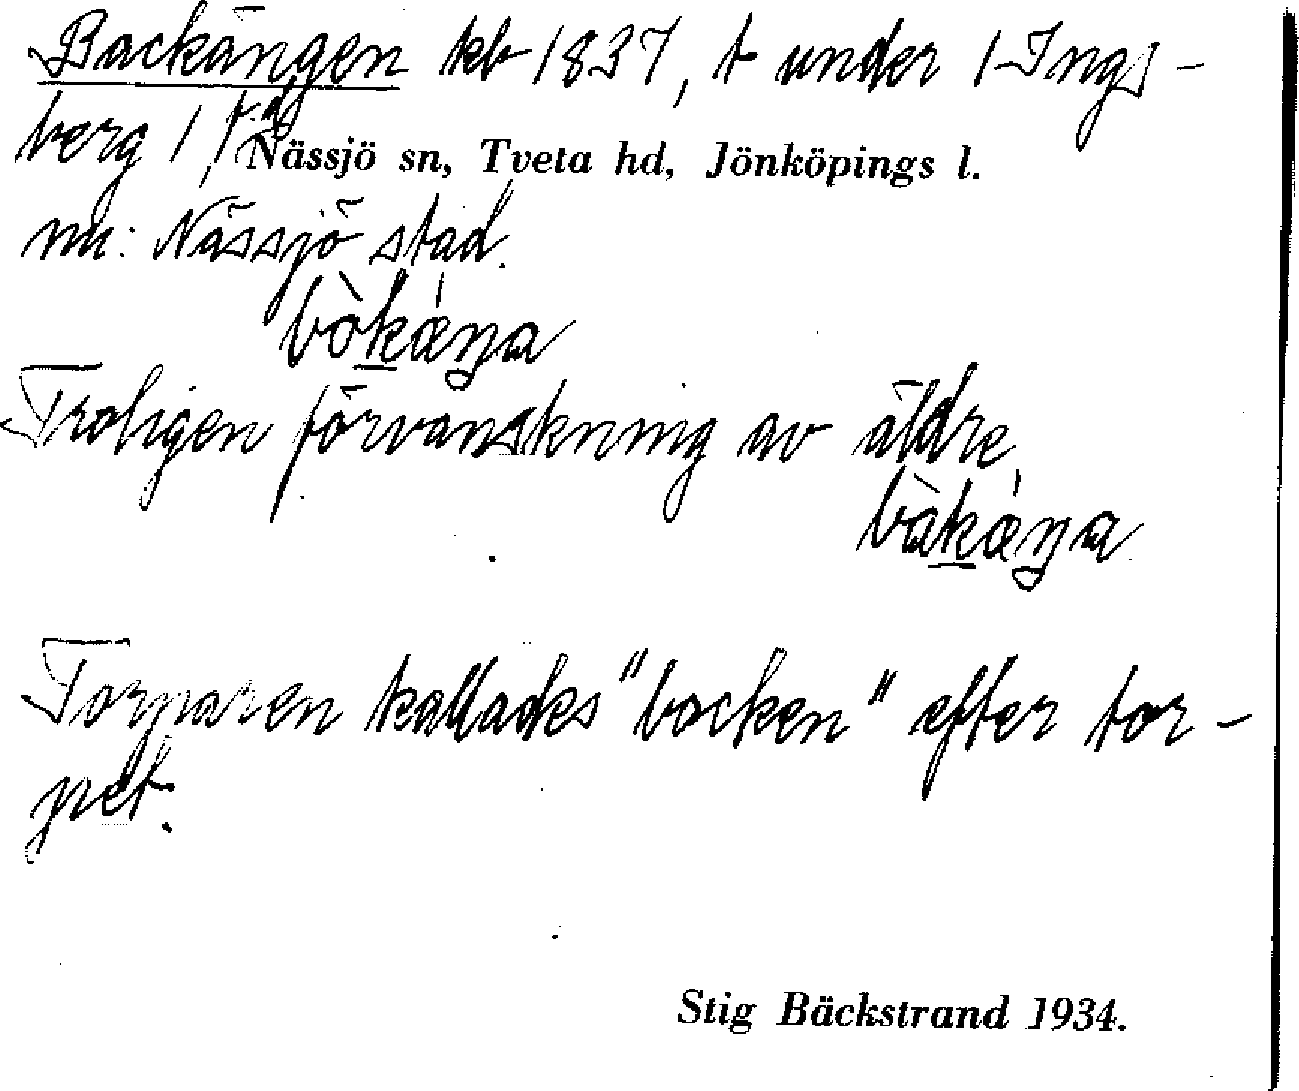 Backängen kb 1837, t under /Ings/-
berg 1, f.d.
Nässjö sn, Tveta hd, Jönköpings l.
nu: Nässjö stad.
bòkáŋa
Troligen förvanskning av äldre
bàkáŋa
Torparen kallades "bocken" efter tor-
pet.
Stig Bäckstrand 1934.